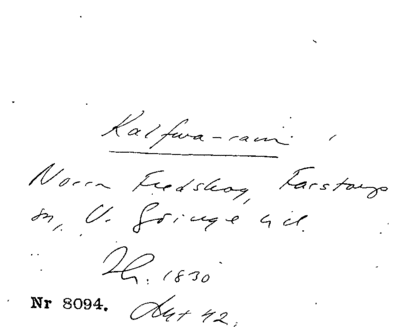 Kalfwa-ram
Norra Fredskog, Farstorps
sn, V. Göinge hd.
1830
Nr 8094. Avt 42.